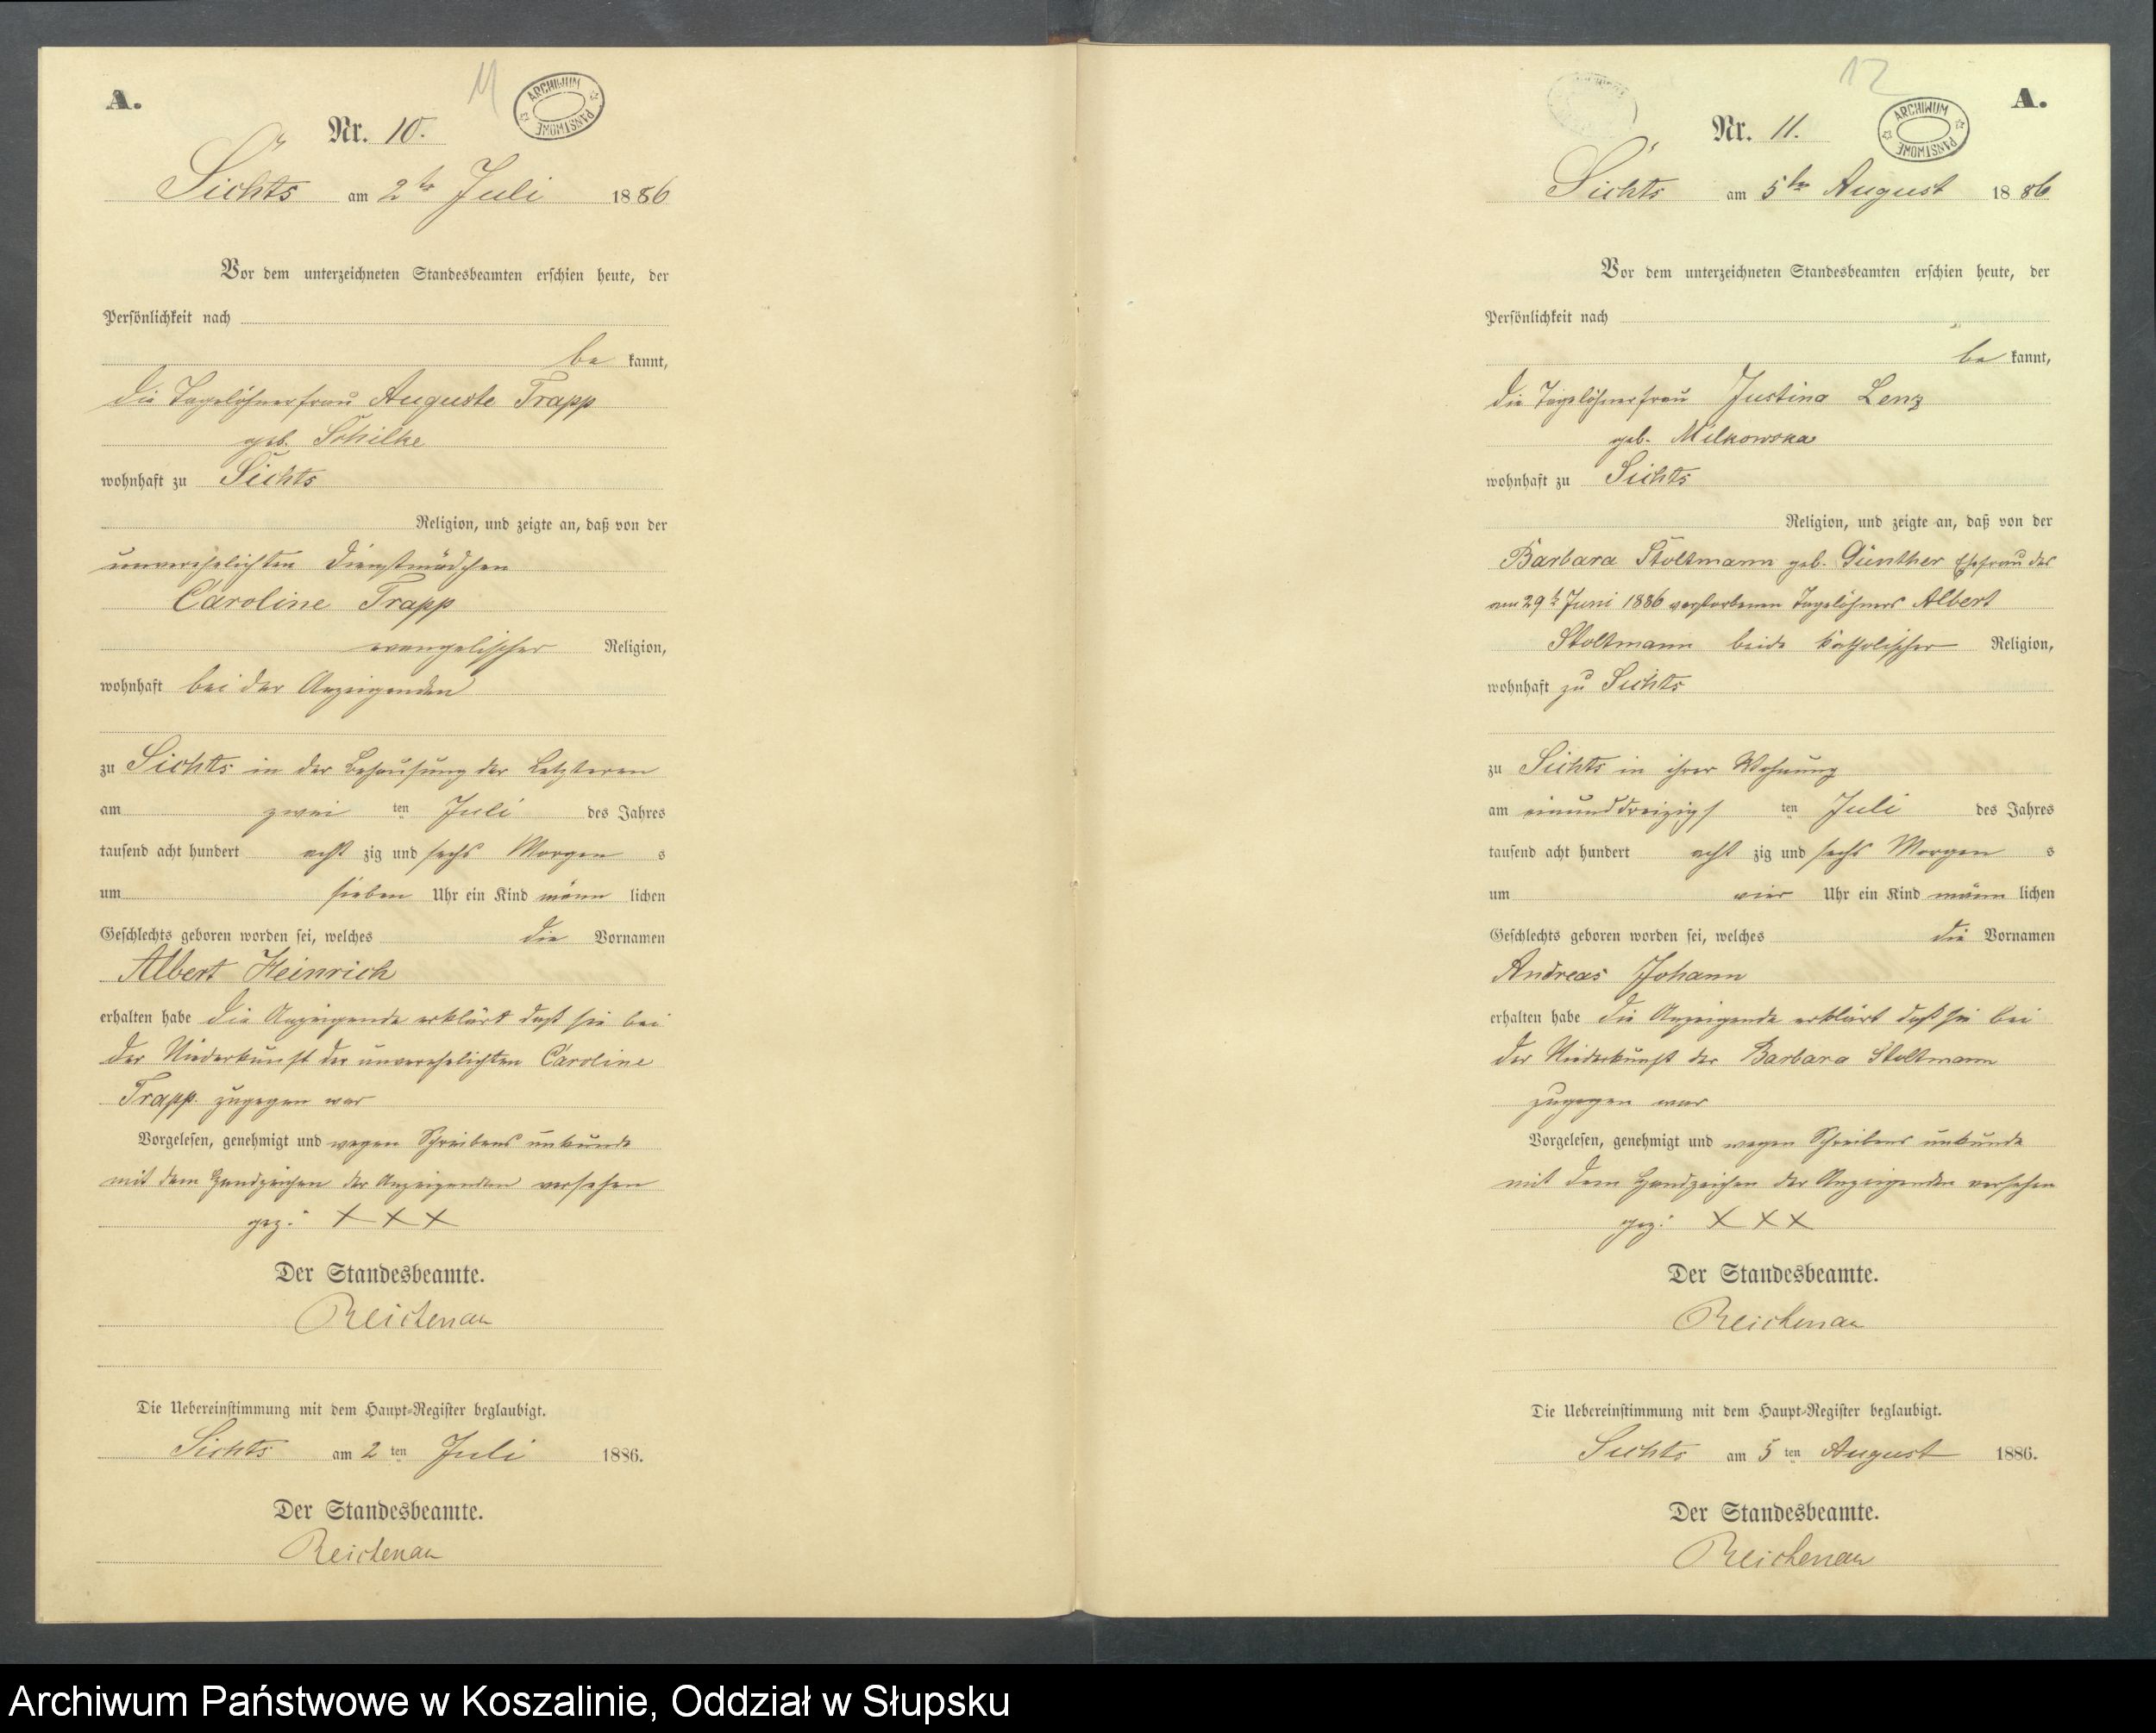 A.
11
ARCHIWUM PAŃSTWOWE
Nr. 10.
Sichts am 2te Juli 1886
Vor dem unterzeichneten Standesbeamten erschien heute, der
Persönlichkeit nach
be kannt,
die Tagelöhnerfrau Auguste Trapp
geb. Schilke
wohnhaft zu Sichts
Religion, und zeigte an, daß von der
unverehelichten Dienstmädchen
Caroline Trapp
evangelischer Religion,
wohnhaft bei der Anzeigenden
zu Sichts in der Behausung der Letzteren
am zwei ten Juli des Jahres
tausend acht hundert acht zig und sechs Morgen s
um sieben Uhr ein Kind männ lichen
Geschlechts geboren worden sei, welches die Vornamen
Albert Heinrich
erhalten habe die Anzeigende erklärt daß sie bei
der Niederkunft der unverehelichten Caroline
Trapp zugegen war
Vorgelesen, genehmigt und wegen Schreibens unkunde
mit dem Handzeichen der Anzeigenden versehen
gez: XXX
Der Standesbeamte.
Reichenau
Die Uebereinstimmung mit dem Haupt-Register beglaubigt.
Sichts am 2 ten Juli 1886.
Der Standesbeamte.
Reichenau
12
A.
ARCHIWUM PAŃSTWOWE
Nr. 11.
Sichts am 5te August 1886
Vor dem unterzeichneten Standesbeamten erschien heute, der
Persönlichkeit nach
be kannt,
die Tagelöhnerfrau Justina Lenz
geb. Milkowska
wohnhaft zu Sichts
Religion, und zeigte an, daß von der
Barbara Stoltmann geb. Günther Ehefrau des
am 29t Juni 1886 verstorbenen Tagelöhners Albert
Stoltmann beide katholischer Religion,
wohnhaft zu Sichts
zu Sichts in ihrer Wohnung
am einunddreizigs ten Juli des Jahres
tausend acht hundert acht zig und sechs Morgen s
um vier Uhr ein Kind männ lichen
Geschlechts geboren worden sei, welches die Vornamen
Andreas Johann
erhalten habe die Anzeigende erklärt daß sie bei
der Niederkunft der Barbara Stoltmann
zugegen war
Vorgelesen, genehmigt und wegen Schreibens unkunde
mit dem Handzeichen der Anzeigenden versehen
gez: XXX
Der Standesbeamte.
Reichenau
Die Uebereinstimmung mit dem Haupt-Register beglaubigt.
Sichts am 5 ten August 1886.
Der Standesbeamte.
Reichenau
Archiwum Państwowe w Koszalinie, Oddział w Słupsku